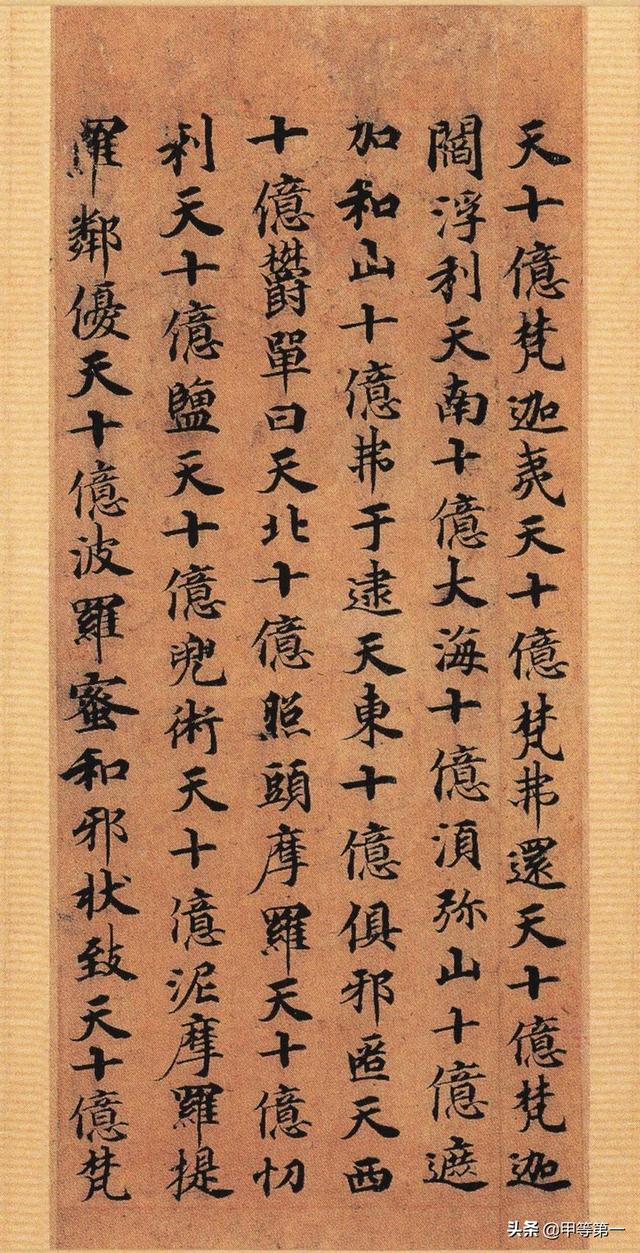 天十億梵迦夷天十億梵弗還天十億梵迦
閻浮利天南十億大海十億須弥山十億遮
加和山十億弗于逮天東十億俱邪匿天西
十億欝單曰天北十億照頭摩羅天十億忉
利天十億鹽天十億兜術天十億泥摩羅提
羅鄰優天十億波羅蜜和邪状致天十億梵
头条 @甲等第一